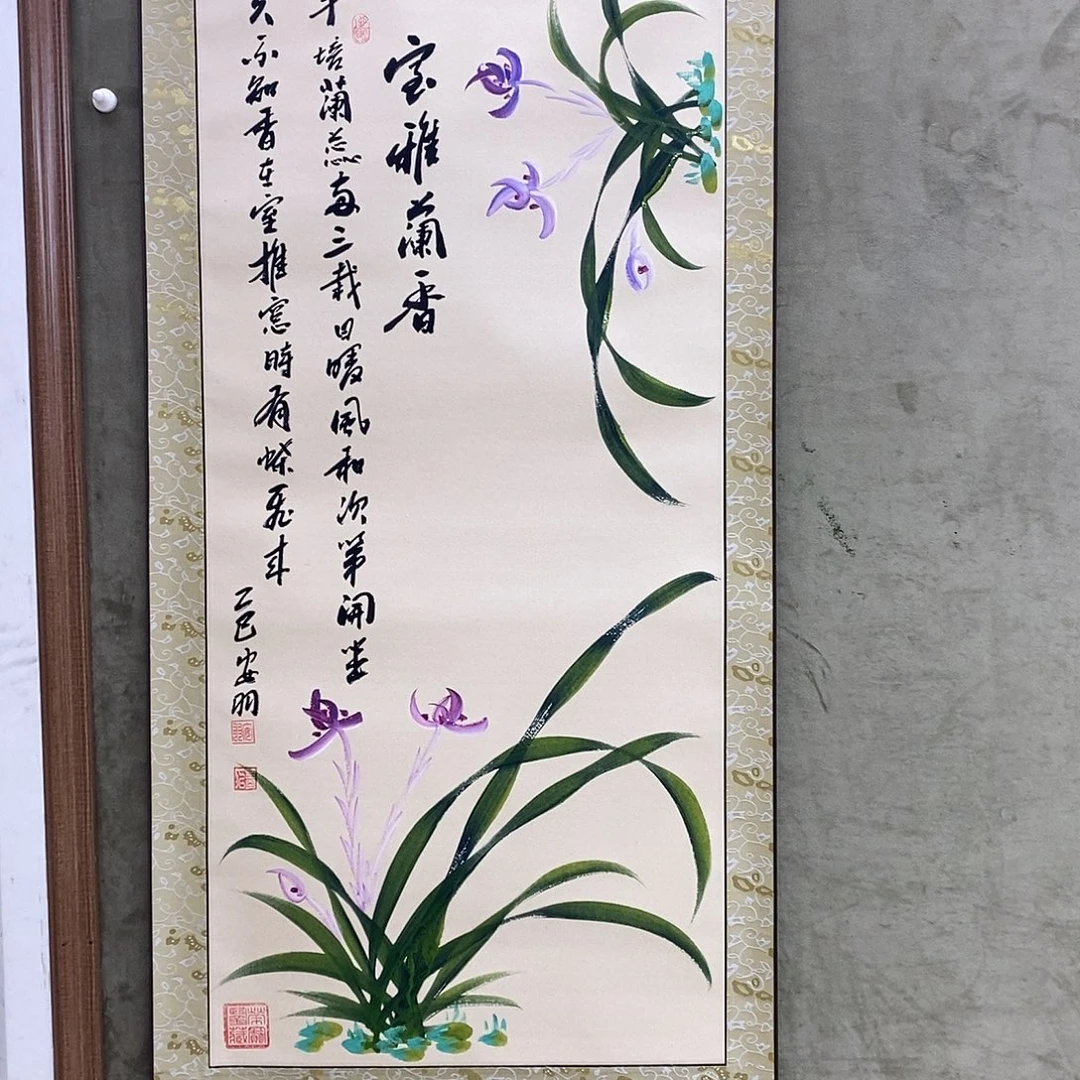 室雅蘭香
手培蘭蕊兩三栽日暖風和次第開坐
久不知香在室推窓時有蝶飛來
乙巳安明